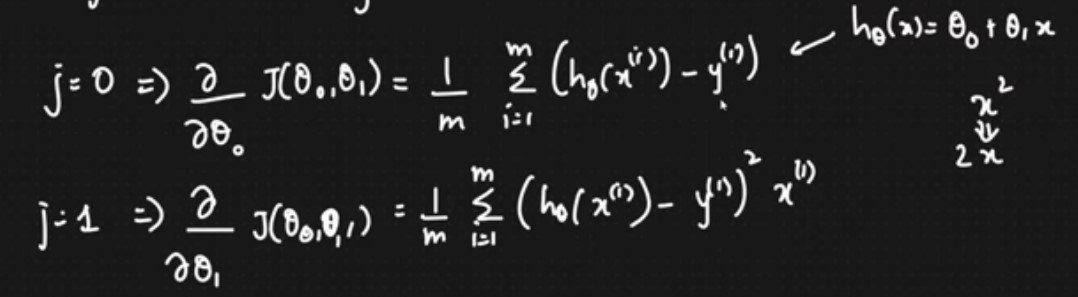 j=0 => ∂/∂θ₀ J(θ₀,θ₁) = 1/m Σᵢ₌₁ᵐ (h_θ(x⁽ⁱ⁾) - y⁽ⁱ⁾)
h_θ(x) = θ₀ + θ₁x
x²
⇓
2x
j=1 => ∂/∂θ₁ J(θ₀,θ₁) = 1/m Σᵢ₌₁ᵐ (h_θ(x⁽ⁱ⁾) - y⁽ⁱ⁾)² x⁽ⁱ⁾